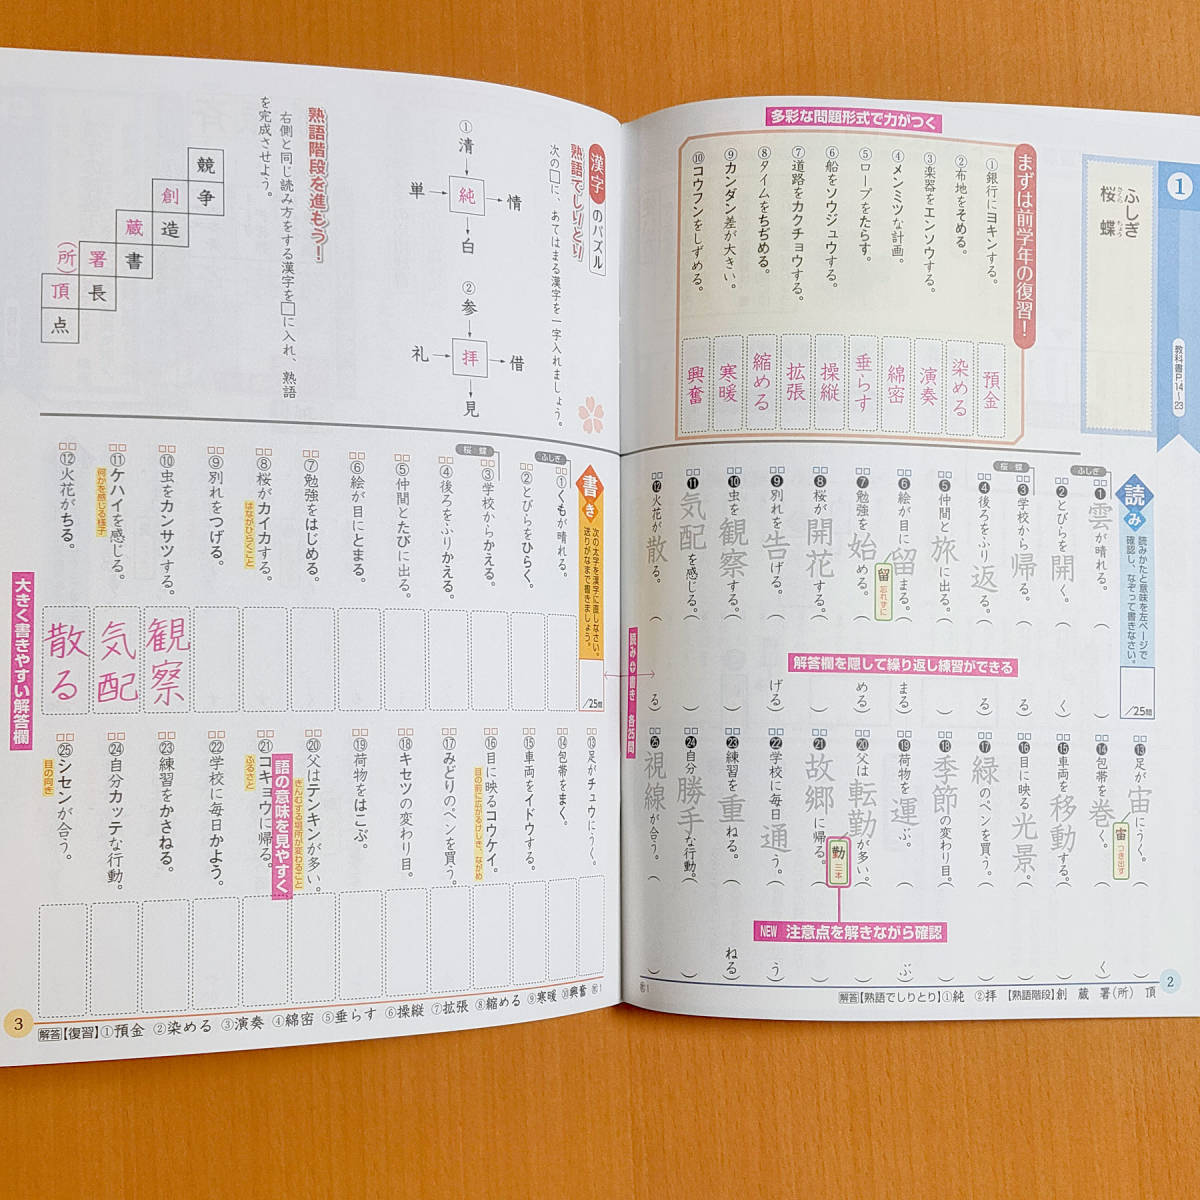 1
ふしぎ
桜蝶
教科書P.14〜23
多彩な問題形式で力がつく
まずは前学年の復習！
①銀行にヨキンする。
預金
②布地をそめる。
染める
③楽器をエンソウする。
演奏
④メンミツな計画。
綿密
⑤ロープをたらす。
垂らす
⑥船をソウジュウする。
操縦
⑦道路をカクチョウする。
拡張
⑧タイムをちぢめる。
縮める
⑨カンダン差が大きい。
寒暖
⑩コウフンをしずめる。
興奮
読み
読みかたと意味を左ページで確認し、なぞって書きなさい。
/25問
ふしぎ
❶雲が晴れる。（　）
❷とびらを開く。（　く）
桜 蝶
❸学校から帰る。（　る）
❹後ろをふり返る。（　る）
❺仲間と旅に出る。（　）
❻絵が目に留まる。（　まる）
留 忘れずに
❼勉強を始める。（　める）
❽桜が開花する。（　）
❾別れを告げる。（　げる）
❿虫を観察する。（　）
⓫気配を感じる。（　）
⓬火花が散る。（　る）
解答欄を隠して繰り返し練習ができる
⓭足が宙にうく。（　）
宙 つき出す
⓮包帯を巻く。（　く）
⓯車両を移動する。（　）
⓰目に映る光景（　）
⓱緑のペンを買う。（　）
⓲季節の変わり目。（　）
⓳荷物を運ぶ。（　ぶ）
⓴父は転勤が多い。（　）
勤 三本
㉑故郷に帰る。（　）
㉒学校に毎日通う。（　う）
㉓練習を重ねる。（　ねる）
㉔自分勝手な行動。（　）
㉕視線が合う。（　）
NEW 注意点を解きながら確認
解答【熟語でしりとり】①純 ②拝 【熟語階段】創 蔵 署(所) 頂
2
読み⇔書き 各25問
漢字のパズル
熟語でしりとり
次の□に、あてはまる漢字を一字入れましょう。
①
清
単 純 情
白
②
参
礼 拝 借
見
熟語階段を進もう！
右側と同じ読み方をする漢字を□に入れ、熟語を完成させよう。
競
創 争
蔵 造
(所) 署 書
頂 長
点
書き
次の太字を漢字に直しなさい。送りがなまで書きましょう。
/25問
ふしぎ
①くもが晴れる。
②とびらをひらく。
桜 蝶
③学校からかえる。
④後ろをふりかえる。
⑤仲間とたびに出る。
⑥絵が目にとまる。
⑦勉強をはじめる。
⑧桜がカイカする。
はながひらくこと
⑨別れをつげる。
⑩虫をカンサツする。
観察
⑪ケハイを感じる。
何かを感じる様子
気配
⑫火花がちる。
散る
大きく書きやすい解答欄
⑬足がチュウにうく。
⑭包帯をまく。
⑮車両をイドウする。
⑯目に映るコウケイ。
目の前に広がるけしき、ながめ
⑰みどりのペンを買う。
⑱キセツの変わり目。
⑲荷物をはこぶ。
⑳父はテンキンが多い。
きんむする場所が変わること
語の意味を見やすく
㉑コキョウに帰る。
ふるさと
㉒学校に毎日かよう。
㉓練習をかさねる。
㉔自分カッテな行動。
㉕シセンが合う。
目の向き
3
解答【復習】①預金 ②染める ③演奏 ④綿密 ⑤垂らす ⑥操縦 ⑦拡張 ⑧縮める ⑨寒暖 ⑩興奮